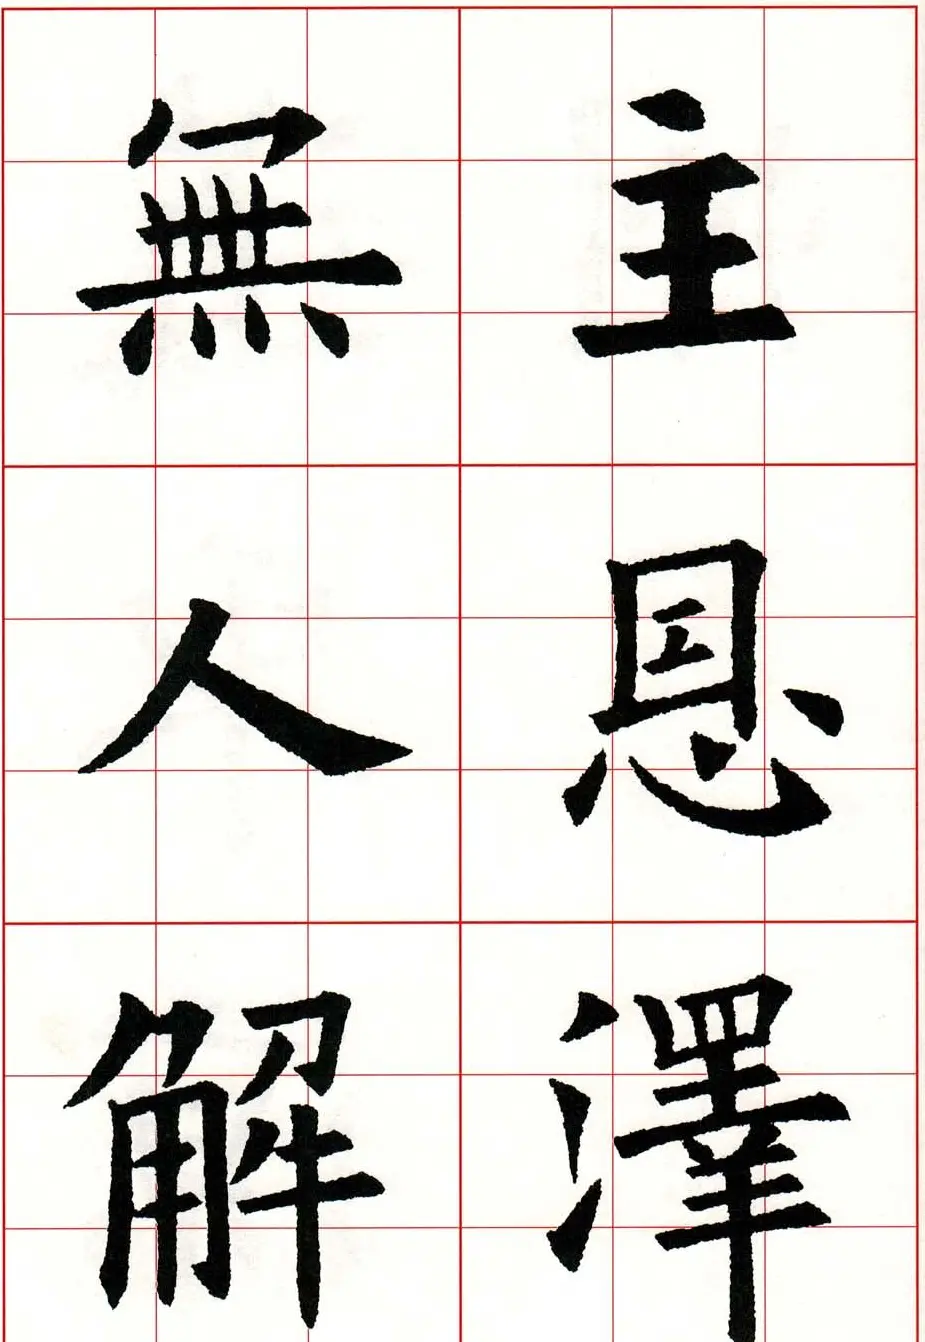 主恩澤
無人解